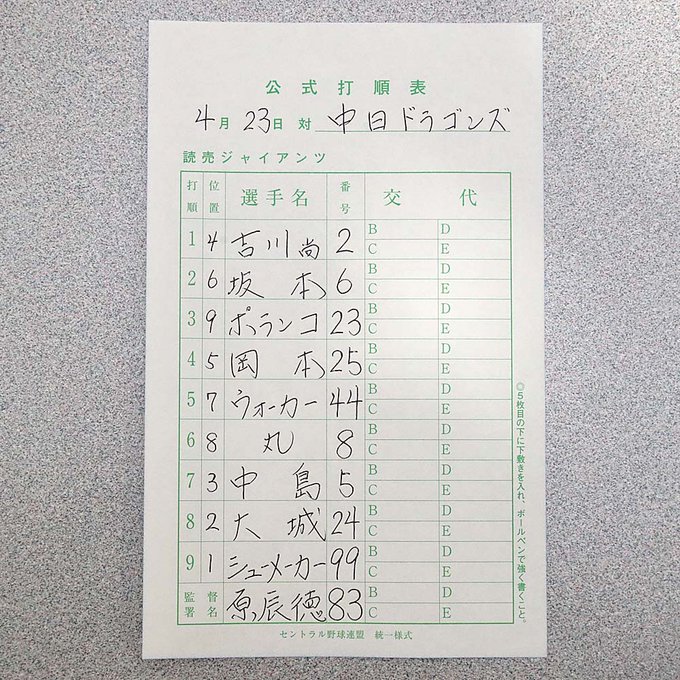 公式打順表
4月23日 対 中日ドラゴンズ
読売ジャイアンツ
打順 位置 選手名 番号 交代
1 4 吉川尚 2 B D C E
2 6 坂本 6 B D C E
3 9 ポランコ 23 B D C E
4 5 岡本 25 B D C E
5 7 ウォーカー 44 B D C E
6 8 丸 8 B D C E
7 3 中島 5 B D C E
8 2 大城 24 B D C E
9 1 シューメーカー 99 B D C E
監督署名 原辰徳 83 B D C E
セントラル野球連盟 統一様式
◎5枚目の下に下敷きを入れ、ボールペンで強く書くこと。